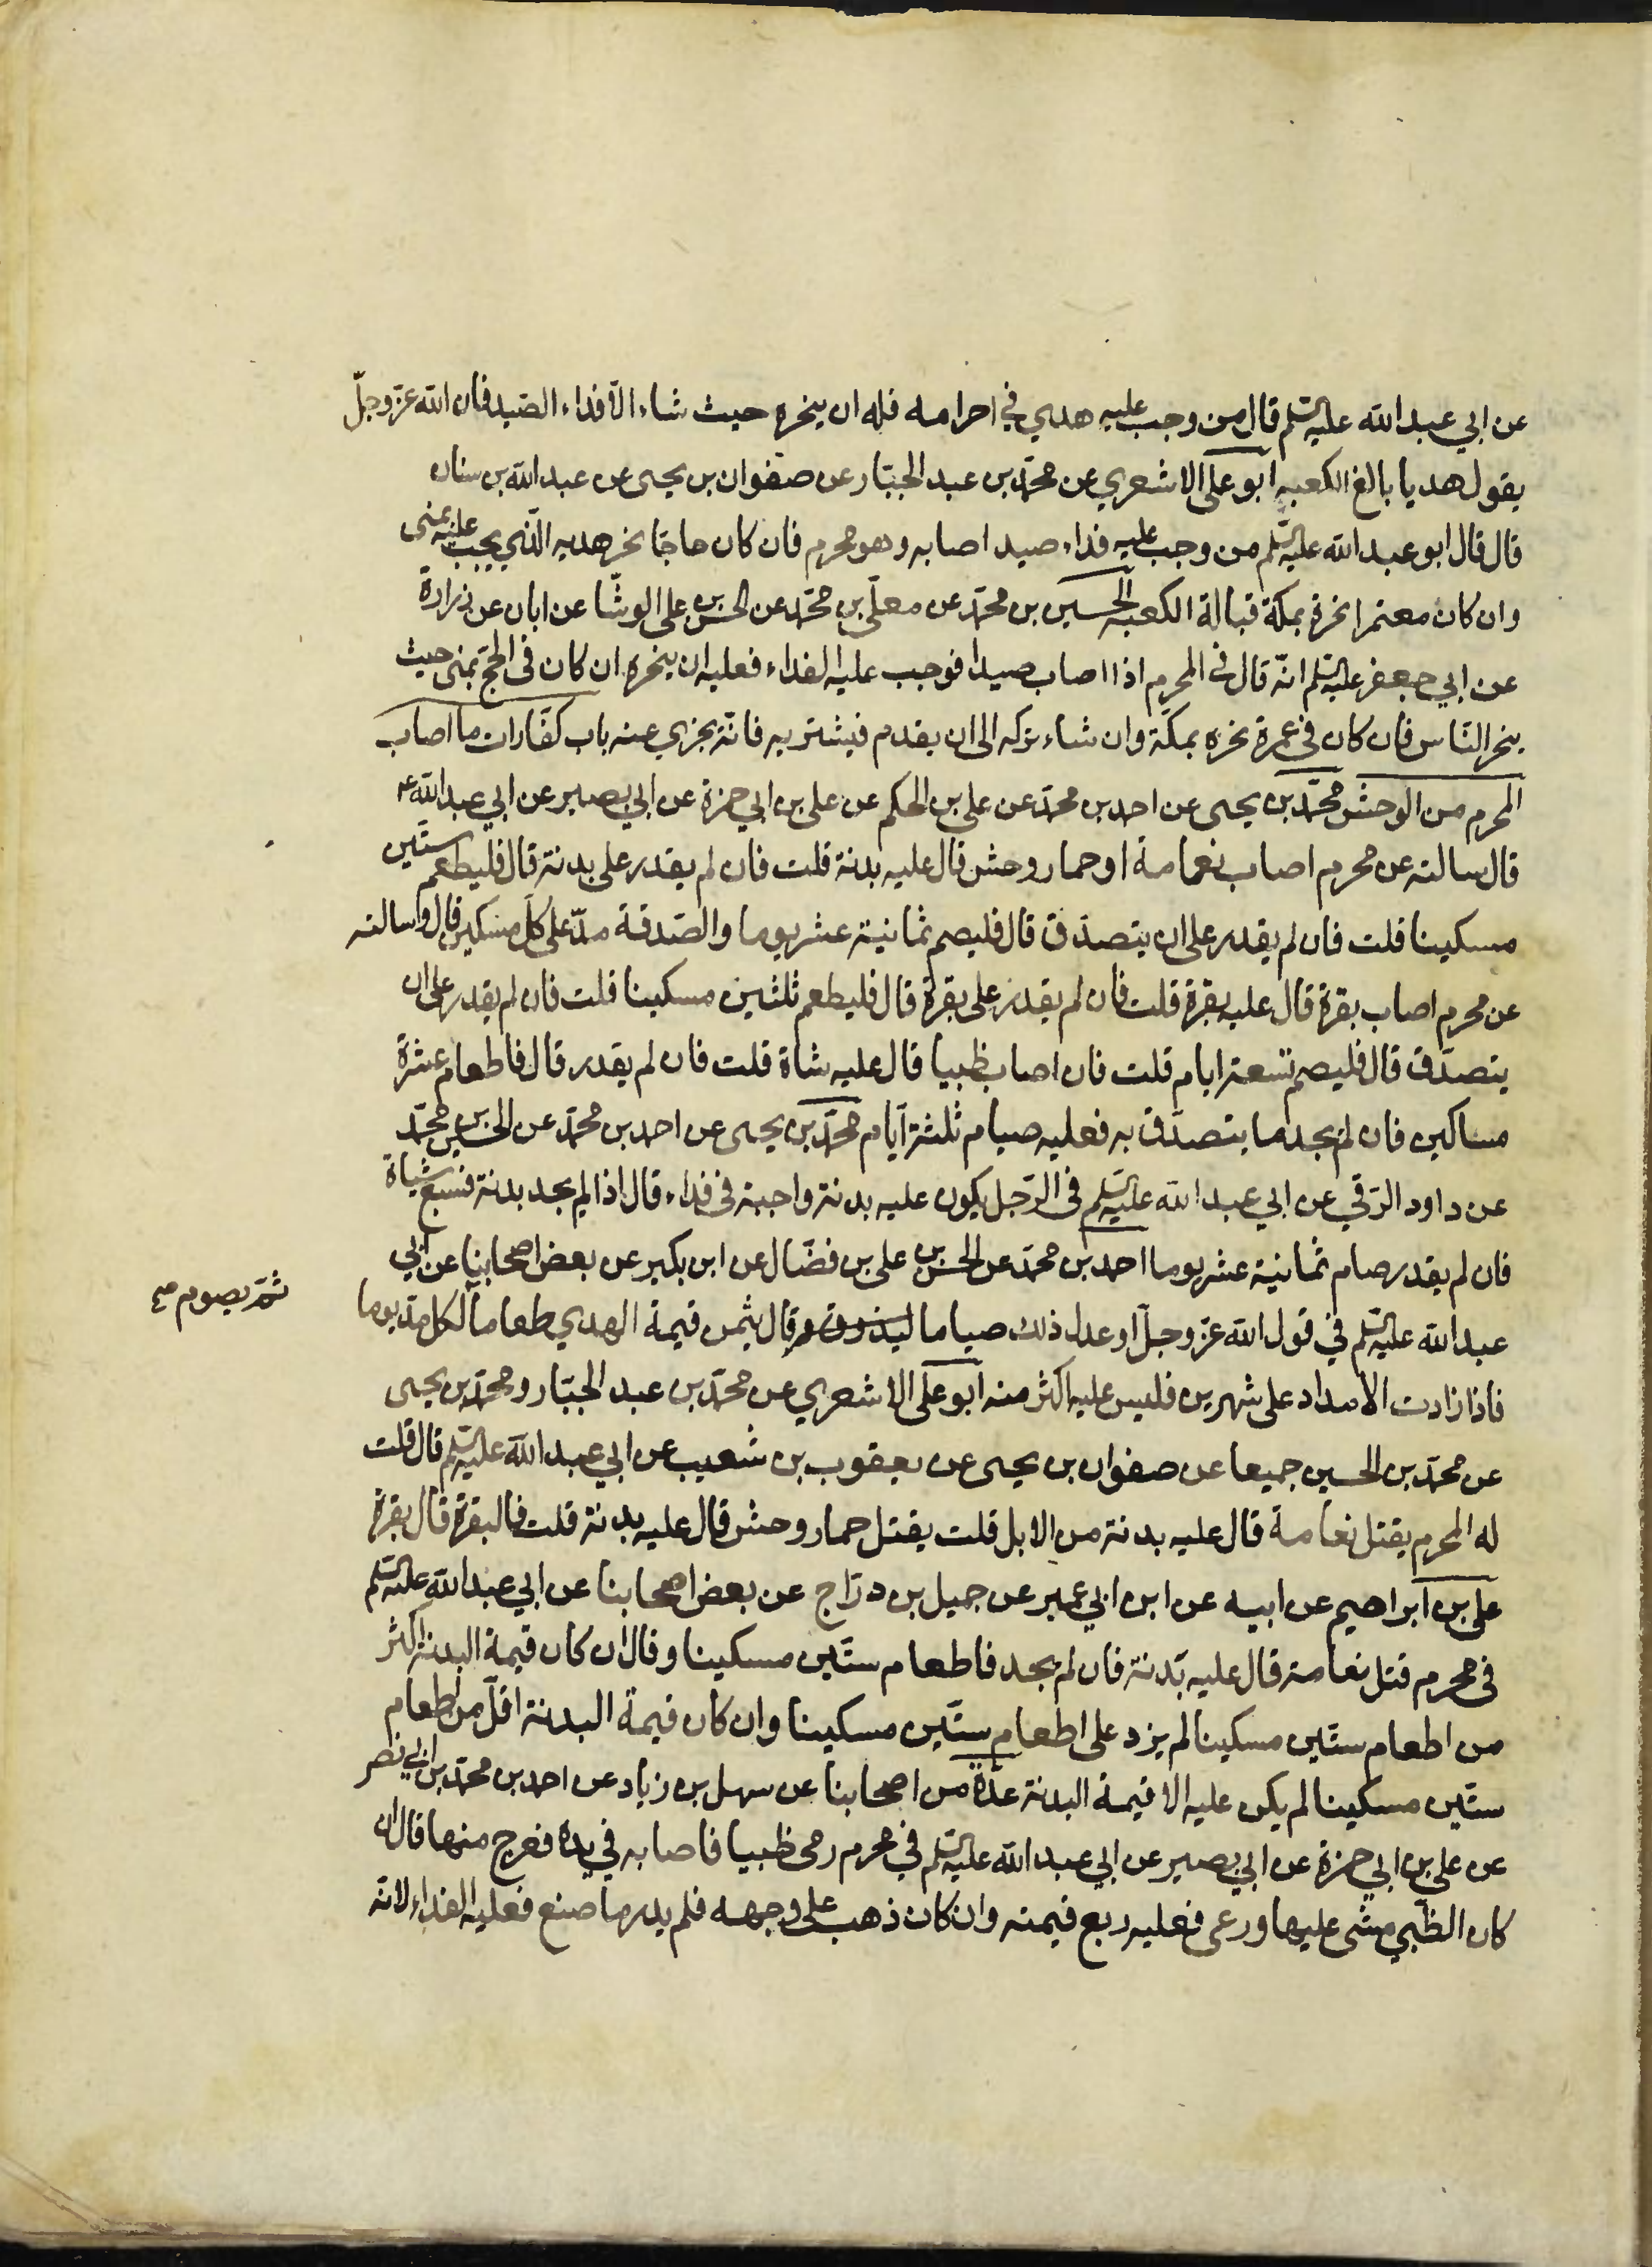 عن ابي عبد الله عليه السلم قال من وجب عليه هدي في احرامه فله ان ينحره حيث شاء الّا فداء الصّيد فان الله عزّ وجلّ
يقول هديا بالغ الكعبه ابو على الاشعري عن محمّد بن عبد الجبّار عن صفوان بن يحيى عن عبد الله بن سنان
قال قال ابو عبد الله عليه السلم من وجب عليه فداء صيد اصابه وهو محرم فان كان حاجّا نحر هديه الّذي يجب عليه بمنى
وان كان معتمرا نحره بمكّة قبالة الكعبه الحسين بن محمّد عن معلّى بن محمّد عن الحسن بن على الوشّا عن ابان عن زرارة
عن ابي جعفر عليه السلم انّه قال في المحرم اذا اصاب صيدا فوجب عليه الفداء فعليه ان ينحره ان كان فى الحجّ بمنى حيث
ينحر النّاس فان كان في عمرة نحره بمكّة وان شاء تركه الى ان يقدم فيشتريه فانّه يجزي عنه باب كفّارات ما اصاب
المحرم من الوحش محمّد بن يحيى عن احمد بن محمّد عن على بن الحكم عن على بن ابي حمزة عن ابي بصير عن ابي عبد الله ع
قال سالته عن محرم اصاب نعامة او حمار وحش قال عليه بدنة قلت فان لم يقدر على بدنة قال فليطعم ستّين
مسكينا قلت فان لم يقدر على ان يتصدّق قال فليصم ثمانية عشر يوما والصّدقة مدّ على كلّ مسكين قال وسالته
عن محرم اصاب بقرة قال عليه بقرة قلت فان لم يقدر على بقرة قال فليطعم ثلثين مسكينا قلت فان لم يقدر على ان
يتصدّق قال فليصم تسعة ايام قلت فان اصاب ظبيا قال عليه شاة قلت فان لم يقدر قال فاطعام عشرة
مساكين فان لم يجد ما يتصدّق به فعليه صيام ثلثة ايّام محمّد بن يحيى عن احمد بن محمّد عن الحسن بن محمّد
عن داود الرّقي عن ابي عبد الله عليه السلم فى الرّجل يكون عليه بدنة واجبة فى فداء قال اذا لم يجد بدنة فسبع شياة
فان لم يقدر صام ثمانية عشر يوما احمد بن محمّد عن الحسن بن على بن فضّال عن ابن بكير عن بعض اصحابنا عن ابي
ثمّ يصوم صح
عبد الله عليه السلم في قول الله عزّ وجلّ او عدل ذلك صياما ليذوق و قال يثمن قيمة الهدي طعاما لكل مدّ يوما
فاذا زادت الامداد على شهرين فليس عليه اكثر منه ابو على الاشعري عن محمّد بن عبد الجبّار ومحمّد بن يحيى
عن محمّد بن الحسين جميعا عن صفوان بن يحيى عن يعقوب بن شعيب عن ابي عبد الله عليه السلم قال قلت
له المحرم يقتل نعامة قال عليه بدنة من الابل قلت يقتل حمار وحش قال عليه بدنة قلت فالبقرة قال بقرة
على بن ابراهيم عن ابيه عن ابن ابي عمير عن جميل بن درّاج عن بعض اصحابنا عن ابي عبد الله عليه السلم
فى محرم قتل نعامة قال عليه بدنة فان لم يجد فاطعام ستّين مسكينا وقال ان كان قيمة البدنة اكثر
من اطعام ستّين مسكينا لم يزد على اطعام ستّين مسكينا وان كان قيمة البدنة اقلّ من اطعام
ستّين مسكينا لم يكن عليه الا قيمة البدنة عدّة من اصحابنا عن سهل بن زياد عن احمد بن محمّد بن ابي نصر
عن على بن ابي حمزة عن ابي بصير عن ابي عبد الله عليه السلم في محرم رمى ظبيا فاصابه في يده فعرج منها قال ان
كان الظّبي مشى عليها ورعى فعليه ربع قيمته وان كان ذهب على وجهه فلم يدر ما صنع فعليه الفداء لانه